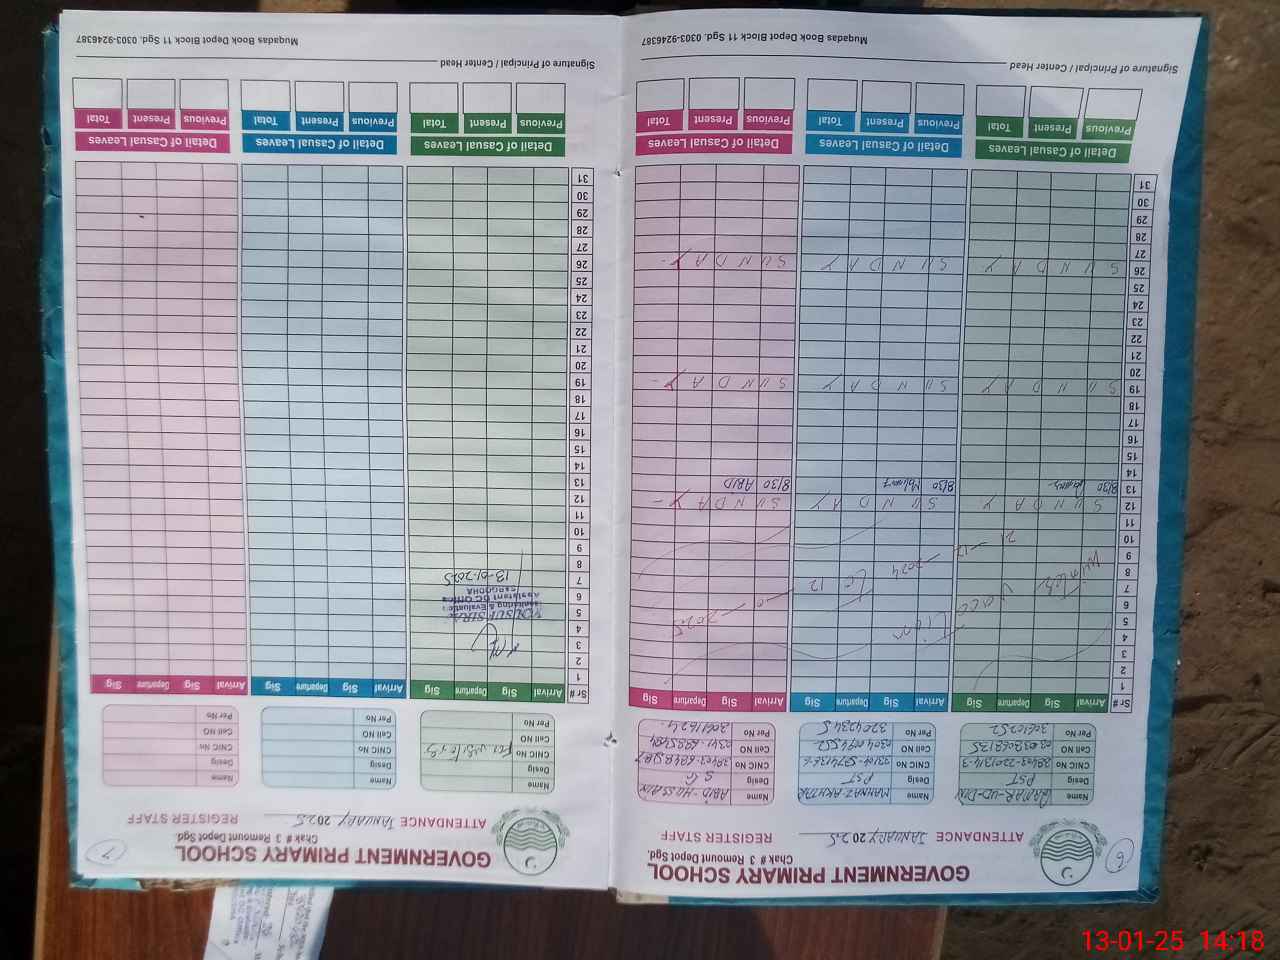 6
GOVERNMENT PRIMARY SCHOOL
Chak # 3 Remount Depot Sgd.
ATTENDANCE JANUARY 2025 REGISTER STAFF
Name QAMAR-UD-DIN
Desig PST
CNIC No
Cell NO
Per No
Name MAHNAZ AKHTAR
Desig PST
CNIC No
Cell NO
Per No
Name ABID HASSAN
Desig
CNIC No
Cell NO
Per No
Sr # Arrival Sig Departure Sig Arrival Sig Departure Sig Arrival Sig Departure Sig
1
2
3
4
5
6
7
8
9
10
11
12 SUNDAY SUNDAY SUNDAY
13 8/30 8/30 8/30 ABID
14
15
16
17
18
19 SUNDAY SUNDAY SUNDAY
20
21
22
23
24
25
26 SUNDAY SUNDAY SUNDAY
27
28
29
30
31
Winter Vacation 21-12-2024 To 12-01-2025
Detail of Casual Leaves Detail of Casual Leaves Detail of Casual Leaves
Previous Present Total Previous Present Total Previous Present Total
Signature of Principal / Center Head
Muqadas Book Depot Block 11 Sgd. 0303-9246387
7
GOVERNMENT PRIMARY SCHOOL
Chak # 3 Remount Depot Sgd.
ATTENDANCE JANUARY 2025 REGISTER STAFF
Name
Desig
CNIC No For visitors
Cell NO
Per No
Name
Desig
CNIC No
Cell NO
Per No
Name
Desig
CNIC No
Cell NO
Per No
Sr # Arrival Sig Departure Sig Arrival Sig Departure Sig Arrival Sig Departure Sig
1
2
3
4
5
6
7
8
9
10
11
12
13
14
15
16
17
18
19
20
21
22
23
24
25
26
27
28
29
30
31
Monitoring & Evaluation
Assistant DC Office
SARGODHA
13-01-2025
Detail of Casual Leaves Detail of Casual Leaves Detail of Casual Leaves
Previous Present Total Previous Present Total Previous Present Total
Signature of Principal / Center Head
Muqadas Book Depot Block 11 Sgd. 0303-9246387
13-01-25 14:18